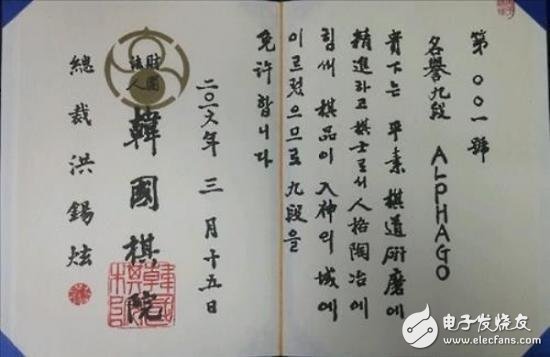 第〇〇一號
名譽九段 ALPHAGO
貴下는 平素 棋道硏磨에
精進하고 棋士로서 人格陶冶에
힘써 棋品이 入神의 域에
이르렀으므로 九段을
免許합니다
二〇一六年 三月 十五日
財團
法人
韓國棋院
總裁 洪錫炫
电子发烧友
www.elecfans.com